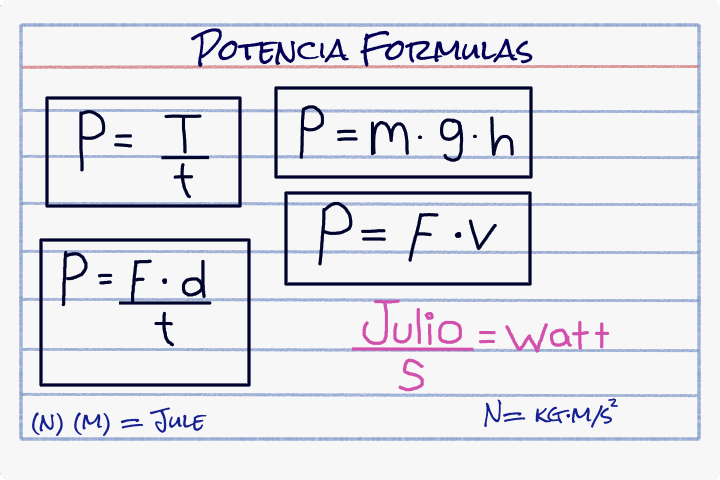 POTENCIA FORMULAS
P = T/t
P = m · g · h
P = F · v
P = F · d/t
Julio/s = watt
(N) (M) = JULE
N = KG·M/S²